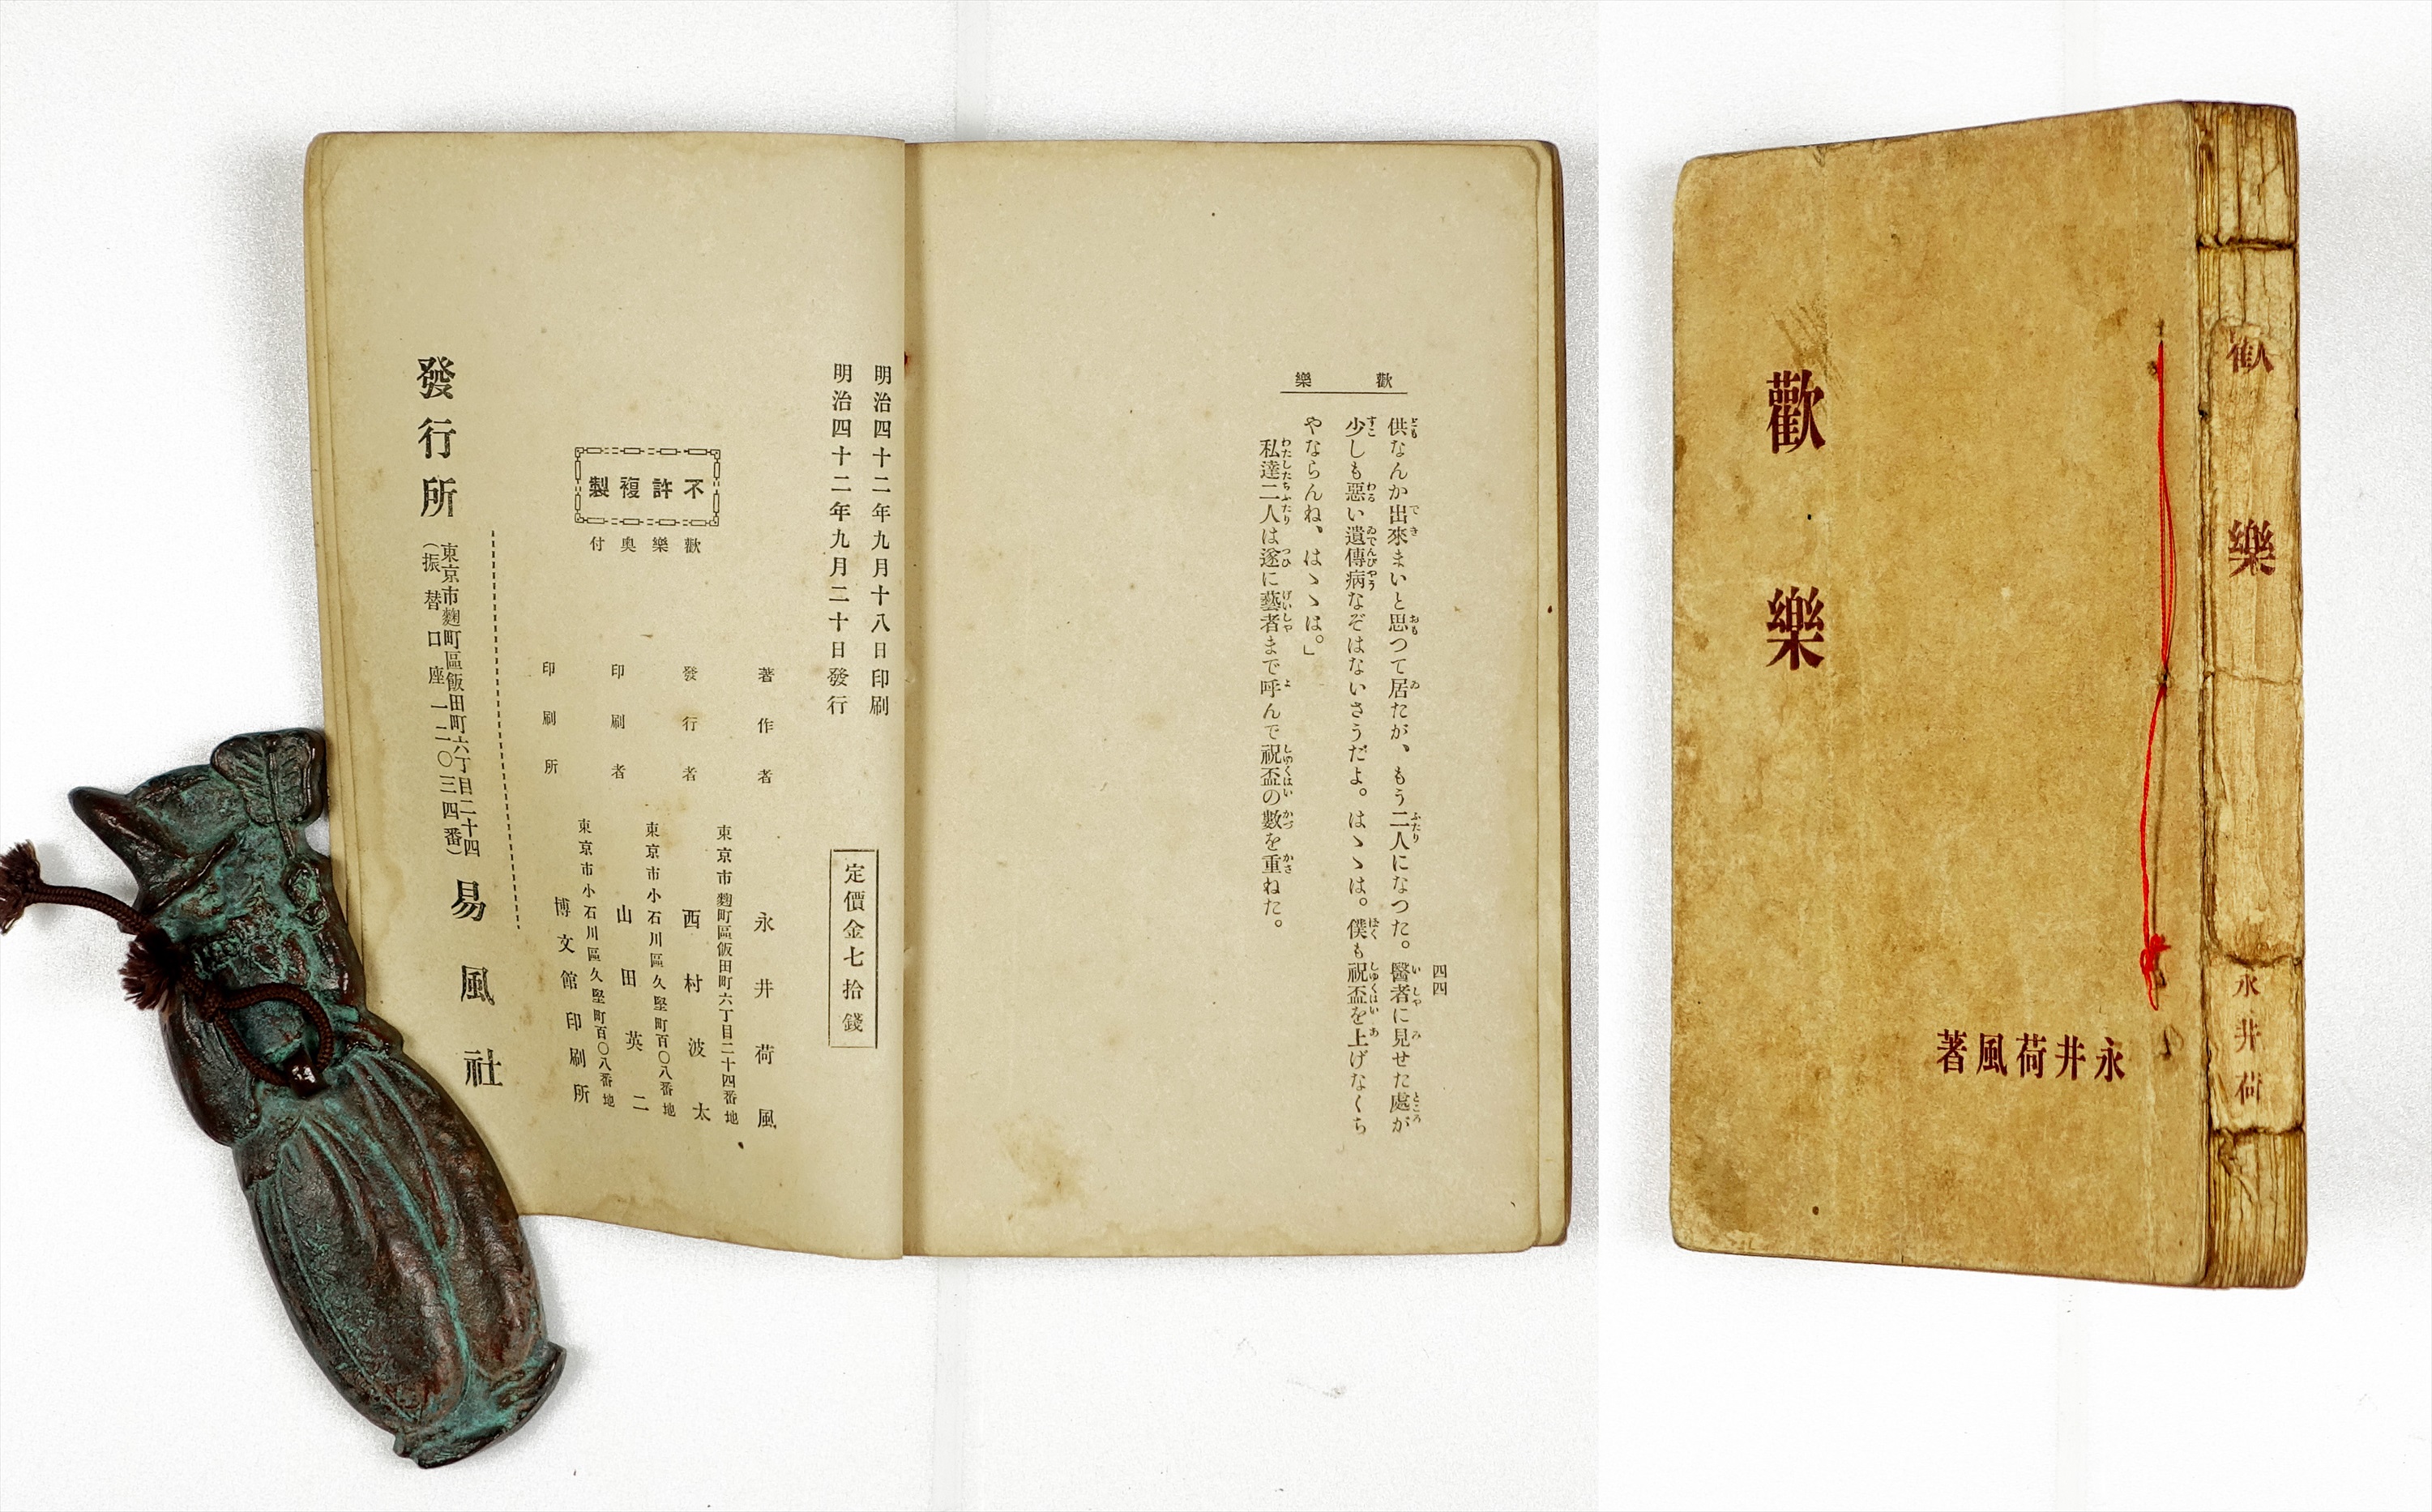 歡樂
四四
供なんか出來まいと思つて居たが、もう二人になつた。醫者に見せた處が
少しも惡い遺傳病なぞはないさうだよ。はゝゝは。僕も祝盃を上げなくち
やならんね、はゝゝは。」
私達二人は遂に藝者まで呼んで祝盃の數を重ねた。
明治四十二年九月十八日印刷
明治四十二年九月二十日發行
定價金七拾錢
不許複製
歡樂奥付
著作者 永井荷風
東京市麴町區飯田町六丁目二十四番地
發行者 西村波太
東京市小石川區久堅町百〇八番地
印刷者 山田英二
東京市小石川區久堅町百〇八番地
印刷所 博文館印刷所
發行所 易風社
東京市麴町區飯田町六丁目二十四
(振替口座一二〇三四番)
歡樂
永井荷風著
歡樂
永井荷